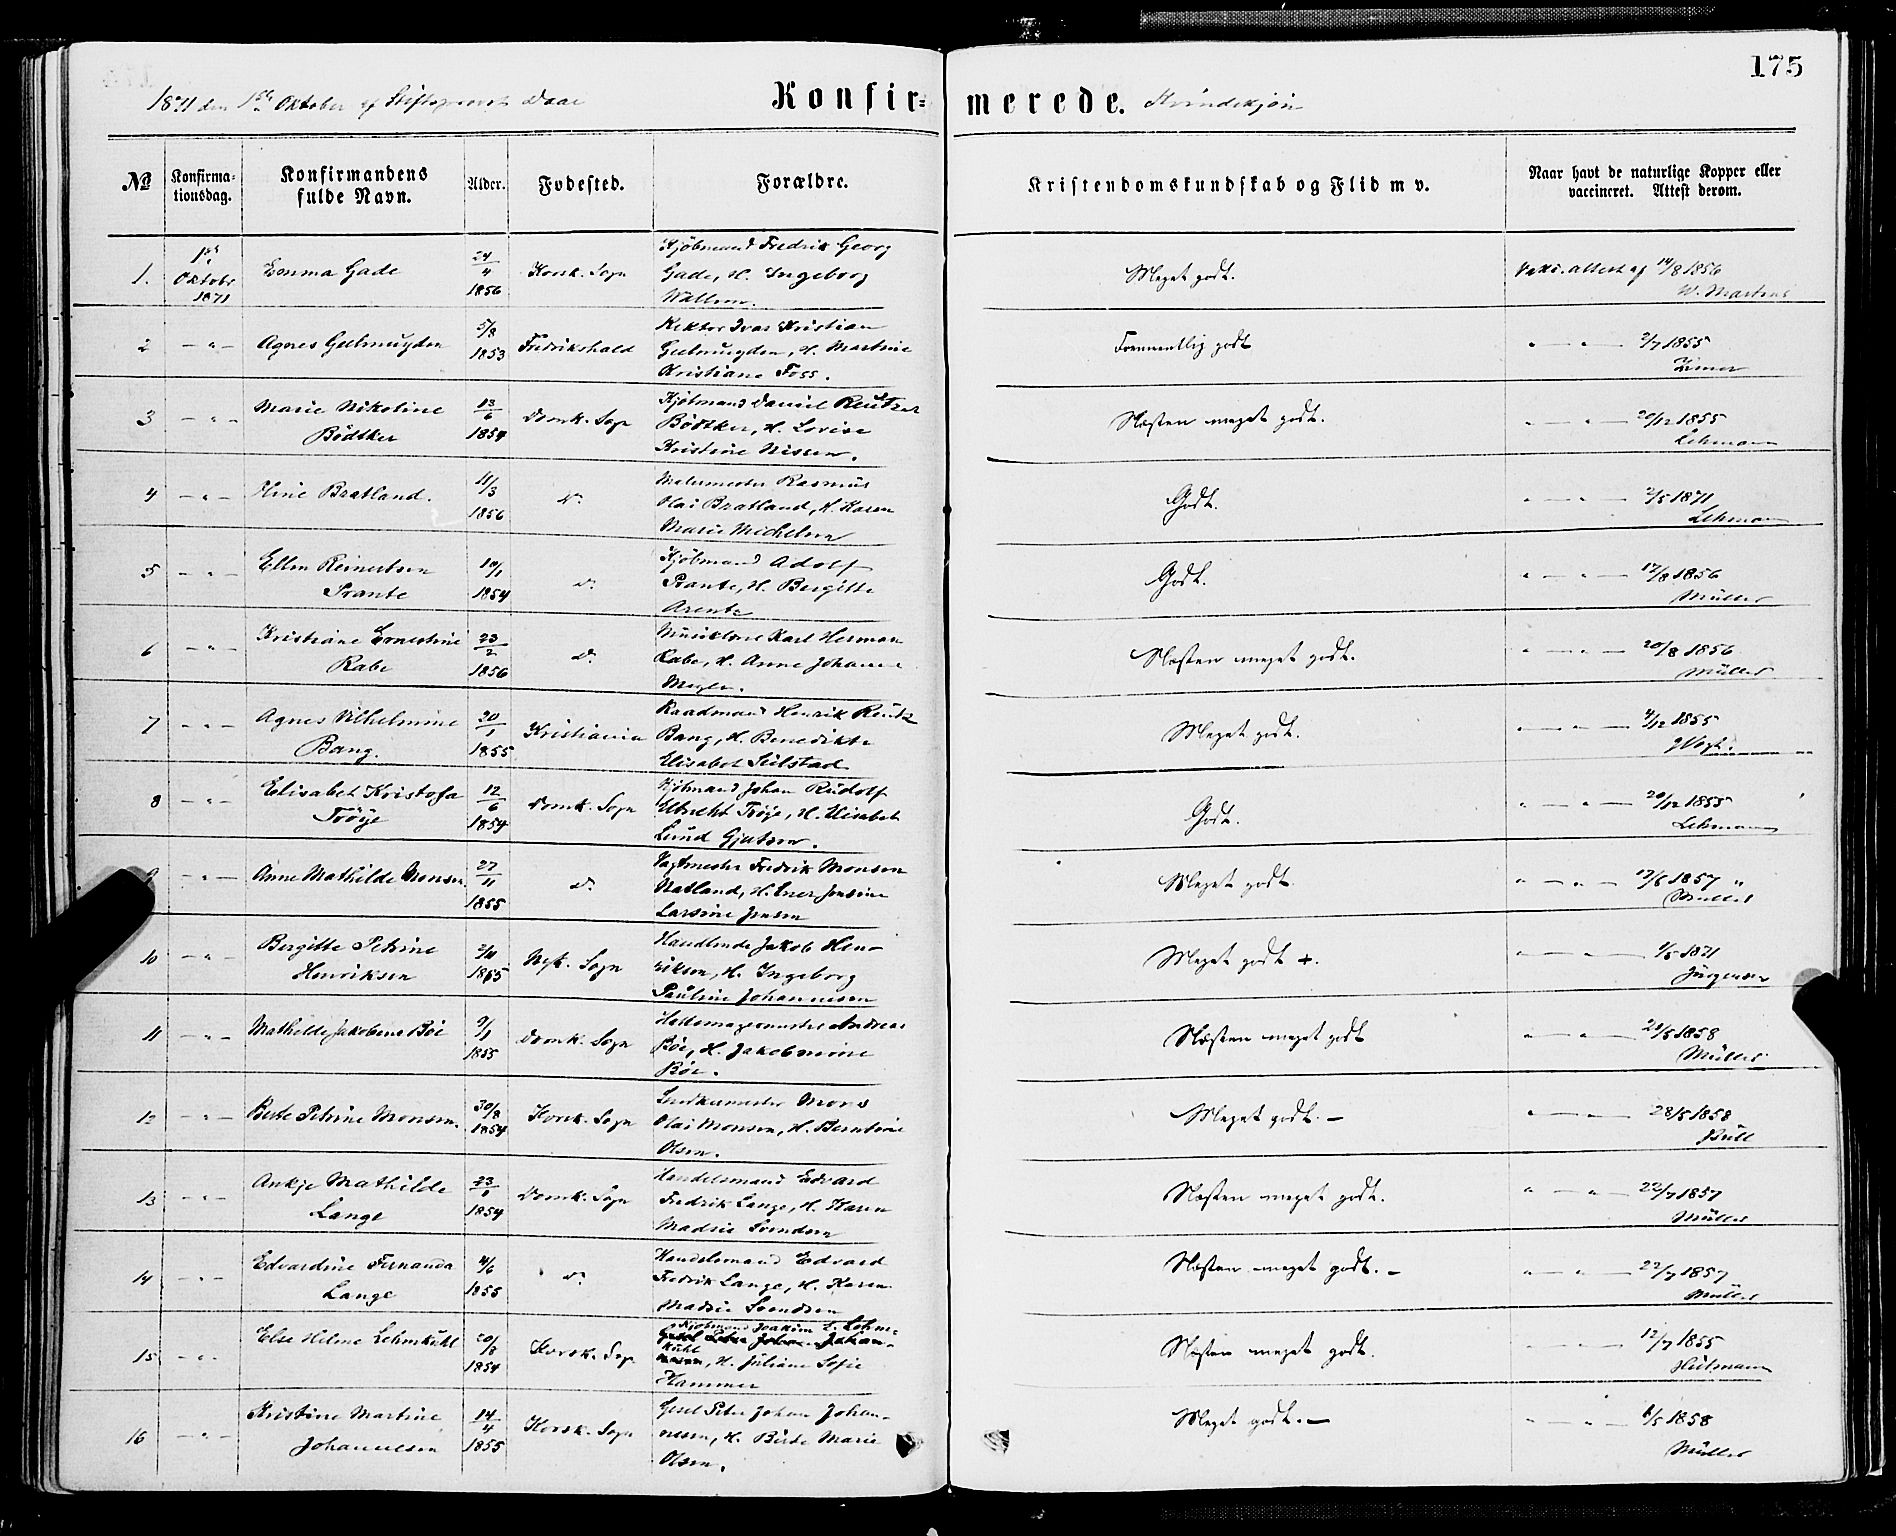 175
1871 den 1ste Oktober af Stiftsprovst Daae
Konfir-
merede. Kvindekjøn
No
Konfirma-
tionsdag.
Konfirmandens
fulde Navn.
Alder.
Fødested.
Forældre.
Kristendomskundskab og Flid m v.
Naar havt de naturlige Kopper eller
vaccineret. Attest derom.
1. 1ste Oktobr 1871 Emma Gade 24/4 1856 Korsk. Sogn
Kjøbmand Fredrik Georg
Gade, H. Ingeborg
Wallem.
Meget godt. Vaks. attest af 14/8 1856
W. Martens
2 - " - Agnes Gulmuyden 5/8 1853 Fredrikshald
Rektor Ivar Kristian
Gulmuyden, H. Martine
Kristiane Foss.
Fornuentlig godt " - " - 2/7 1855
3 - " - Marie Nikoline
Bødtker 13/6 1854 Domk. Sogn
Kjøbmand Daniel Reutzer
Bødtker, H. Lovise
Kristine Nissen.
Næsten meget godt. " - " - 20/12 1855
Lehmann
4 - " - Stine Bratland. 11/3 1856 do
Malermester Rasmus
Olai Bratland, H. Karen
Marie Michelsen
Godt. " - " - 2/5 1871
Lehmann
5 - " - Ellen Reinertsen
Prante 10/1 1854 do
Kjøbmand Adolf
Prante, H. Bergitte
Arentz
Godt. " - " - 17/8 1856
Müller
6 - " - Kristiane Ernestine
Rabe 23/2 1856 do
Musiklærer Karl Herman
Rabe, H. Anne Johanne
Næsten meget godt. " - " - 20/8 1856
Müller
7 - " - Agnes Vilhelmine
Bang. 20/1 1855 Kristiania
Raadmand Henrik Reutz
Bang, H. Benedikte
Elisabet
Meget godt. " - " - 4/12 1855
Vogt.
8 - " - Elisabet Kristofa
Trøye 12/6 1854 Domk. Sogn
Kjøbmand Johan Rudolf
Albrecht Trøye, H. Elisabet
Lund Gjertsen.
Godt. " - " - 20/12 1855
Lehmann
9 - " - Anne Mathilde Monsen 27/11 1855 do
Vagtmester Fredrik Monsen
Natland, H. Jensine
Larsine Jensen
Meget godt. " - " - 17/6 1857
Müller
10 - " - Bergitte Petrine
Henriksen 2/11 1855 Nyk. Sogn
Handlende Jakob Hen-
riksen, H. Ingeborg
Pauline Johannesen
Meget godt +. " - " - 1/5 1871
Jürgensen
11 - " - Mathilde Jakobine Böe 9/1 1855 Domk. Sogn
Hattemagermester Andreas
Böe, H. Jakobmine
Böe.
Næsten meget godt " - " - 21/5 1858
Müller
12 - " - Berte Petrine Monsen. 30/8 1854 Korsk. Sogn
Snedkermester Mons
Olai Monsen, H. Berntine
Olsen.
Meget godt. - " - " - 28/5 1858
Bull
13 - " - Ankje Mathilde
Lange 23/1 1854 Domk. Sogn
Handelsmand Edvard
Fredrik Lange, H. Karen
Madsie Svendsen
Næsten meget godt. " - " - 22/7 1857
Müller
14 - " - Edvardine Fernanda
Lange 4/6 1855 do
Handelsmand Edvard
Fredrik Lange, H. Karen
Madsie Svendsen
Næsten meget godt. - " - " - 22/7 1857
Müller
15 - " - Else Helene Lehmkuhl 20/8 1854 Korsk. Sogn
Kjøbmand Joakim L. Lehm-
kuhl
Gesel Peter Johan Johan-
nesen, H. Juliane Sofie
Hammer
Næsten meget godt. " - " - 12/7 1855
Heitmann
16 - " - Kristine Martine
Johannesen 14/4 1855 Korsk. Sogn
Gesel Peter Johan Johan-
nesen, H. Berte Marie
Olsen.
Meget godt. - " - " - 6/5 1858
Müller